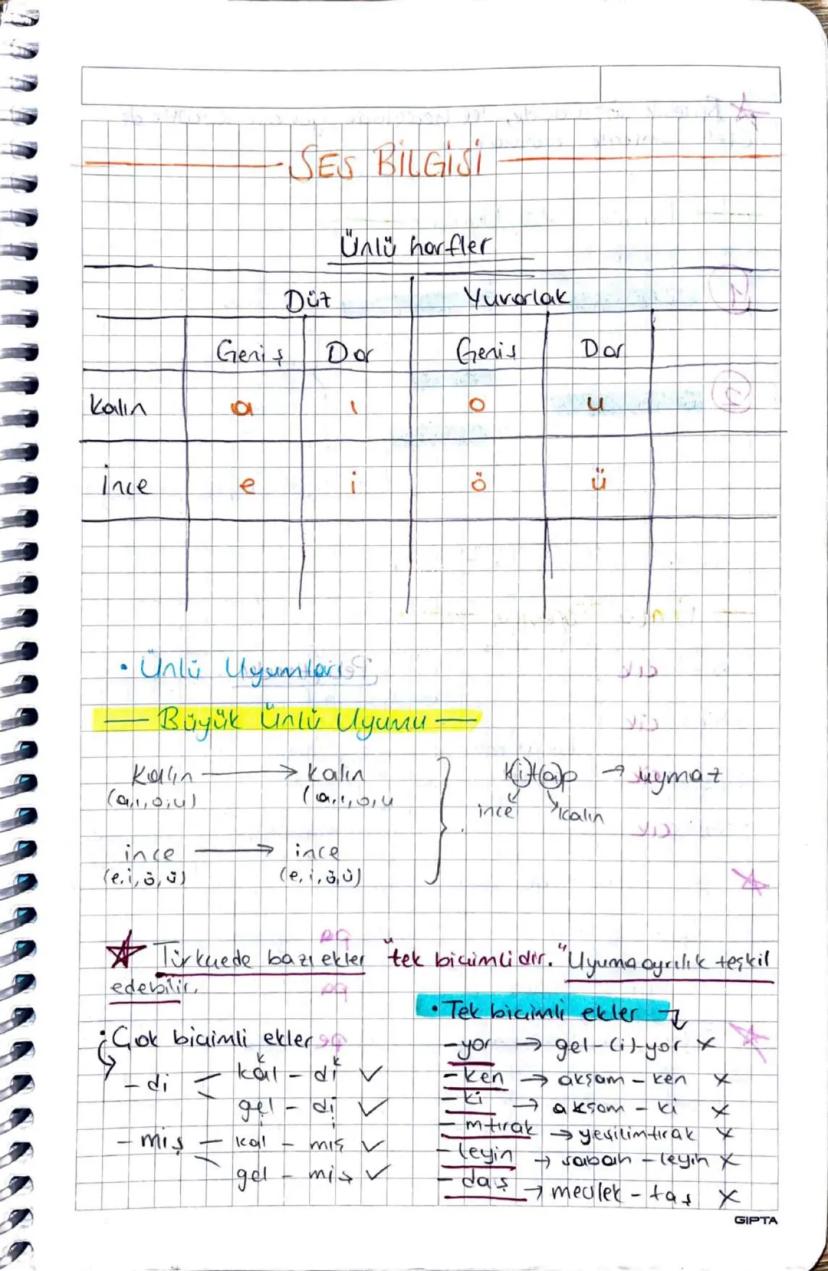 SES BİLGİSİ
Ünlü harfler
Düz Yuvarlak
Geniş Dar Geniş Dar
Kalın a ı o u
İnce e i ö ü
• Ünlü Uyumları
— Büyük Ünlü Uyumu —
Kalın → kalın
(a,ı,o,u) (a,ı,o,u
ince → ince
(e,i,ö,ü) (e,i,ö,ü)
kitap → uymaz
ince kalın
☆ Türkçede bazı ekler "tek biçimlidir." Uyuma ayrılık teşkil
edebilir.
• Çok biçimli ekler
k k
- di < kal - dı ✓
gel - di ✓
- miş - kal - mış ✓
gel - miş ✓
• Tek biçimli ekler
-yor → gel-(i)-yor x
-ken → akşam - ken x
-ki → akşam - ki x
-mtırak → yeşilimtırak x
-leyin → sabah - leyin x
-daş → meslek - taş x
GIPTA